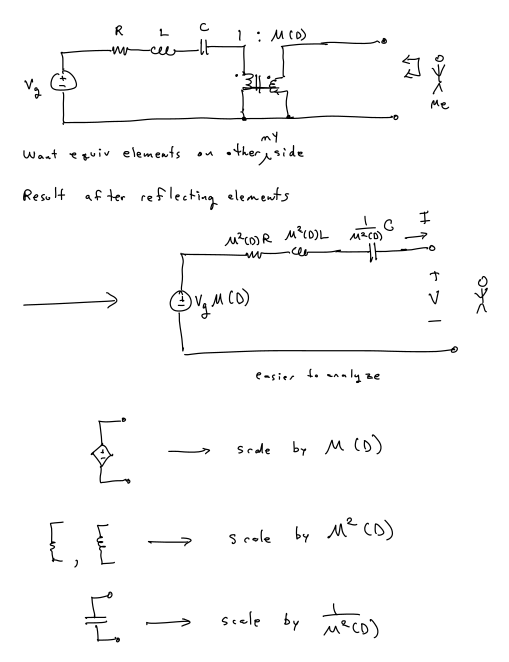 R L C 1 : M(D)
Vg
Me
my
Want equiv elements on other side
Result after reflecting elements
M²(D)R M²(D)L 1/M²(D) C I
Vg M(D)
+
V
−
easier to analyze
scale by M(D)
, scale by M²(D)
scale by 1/M²(D)